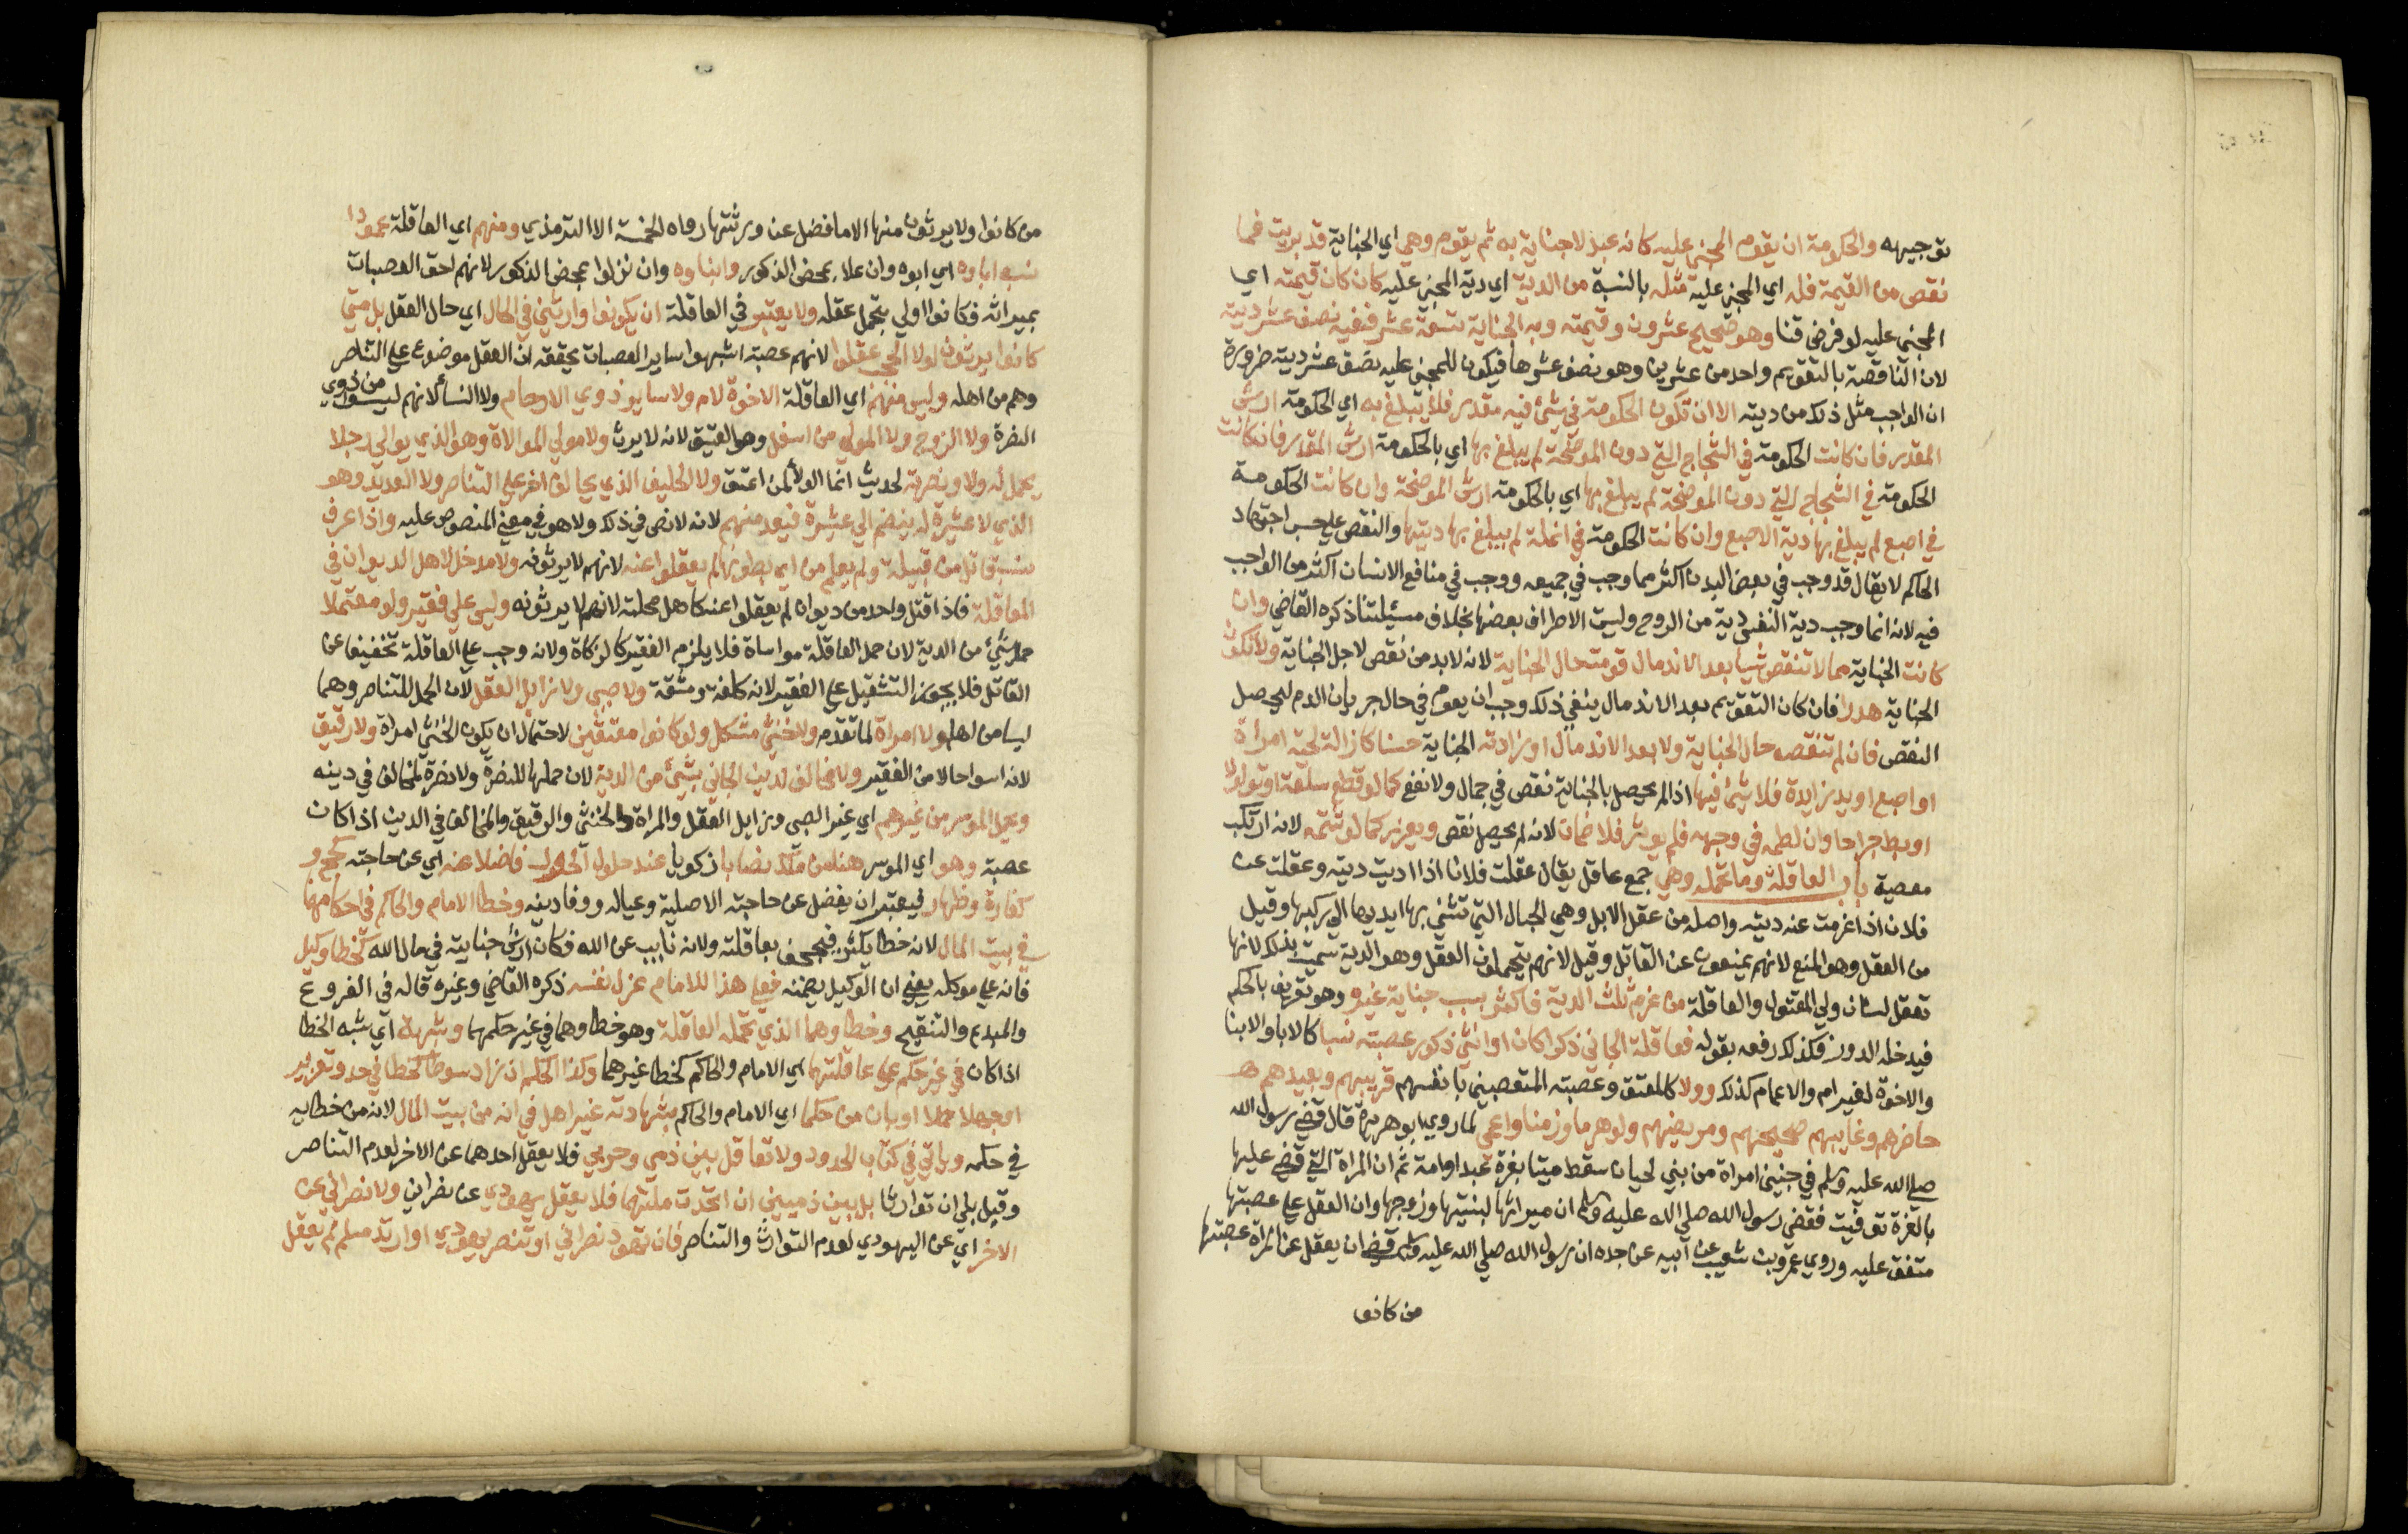 توجيهه والحكومة ان يقوم المجني عليه كانه عبد لاجناية به ثم يقوم وهي اي الجناية قد بريت فما
نقص من القيمة فله اي المجني عليه مثله بالنسبة من الدية اي دية المجني عليه كان كان قيمته اي
المجني عليه لو فرض قنا وهو صحيح عشرون وقيمته وبه الجناية تسعة عشر ففيه نصف عشر ديته
لان الناقصة بالتقويم واحد من عشرين وهو نصف عشرها فيكون للمجني عليه نصف عشر ديته ضرورة
ان الواجب مثل ذلك من ديته الا ان تكون الحكومة في شئ فيه مقدر فلا يبلغ به اي الحكومة ارش
المقدر فان كانت الحكومة في الشجاج التي دون الموضحة لم يبلغ بها اي بالحكومة ارش المقدر فان كانت
الحكومة في الشجاج التي دون الموضحة لم يبلغ بها اي بالحكومة ارش الموضحة وان كانت الحكومة
في اصبع لم يبلغ بها دية الاصبع وان كانت الحكومة في انملة لم يبلغ بها ديتها والنقص على حسب اجتهاد
الحاكم لا يقال قد وجب في بعض البدن اكثر مما وجب في جميعه ووجب في منافع الانسان اكثر من الواجب
فيه لانه انما وجب دية النفس دية من الروح وليست الاطراف بعضها بخلاف مسيلتنا ذكره القاضي وان
كانت الجناية مما لا تنقص شيا بعد الاندمال قومت حال الجناية لانه لا بد من نقص لاجل الجناية ولا تكون
الجناية هدرا فان كان التقويم بعد الاندمال ينفي ذلك وجب ان يقوم في حال جريان الدم ليحصل
النقص فان لم تنقصه حال الجناية ولا بعد الاندمال او زادته الجناية حسنا كازالة لحية امراة
او اصبع او يد زايدة فلا شئ فيها اذ لم يحصل بالجناية نقص في جمال ولا نفع كما لو قطع سلعة او ثولولا
او بط جراحا وان لطمه في وجهه فلم يوثر فلا ضمان لانه لم يحصل نقص ويعزر كما لو شتمه لانه ارتكب
معصية باب العاقلة وما تحمله وهي جمع عاقل يقال عقلت فلانا اذا اديت ديته وعقلت عن
فلان اذا غرمت عنه ديته واصله من عقل الابل وهي الحبال التي تثنى بها ايديها الى ركبها وقيل
من العقل وهو المنع لانهم يمنعون عن القاتل وقيل لانهم يتحملون العقل وهو الدية سميت بذلك لانها
تعقل لسان ولي المقتول والعاقلة من غرم ثلث الدية فاكثر بسبب جناية غيره وهو تعريف بالحكم
فيدخله الدور فكذلك رفعه بقوله فعاقلة الجاني ذكرا كان او انثى ذكور عصبته نسبا كالابا والابنا
والاخوة لغير ام والاعمام كذلك وولا كالمعتق وعصبته المتعصبين بانفسهم قريبهم وبعيدهم
حاضرهم وغايبهم صحيحهم ومريضهم ولو هرما وزمنا واعمى لما روى ابو هريرة قال قضى رسول الله
صلى الله عليه وسلم في جنين امراة من بني لحيان سقط ميتا بغرة عبد او امة ثم ان المراة التي قضى عليها
بالغرة توفيت فقضى رسول الله صلى الله عليه وسلم ان ميراثها لبنتيها وزوجها وان العقل على عصبتها
متفق عليه وروى عمرو بن شعيب عن ابيه عن جده ان رسول الله صلى الله عليه وسلم قضى ان يعقل عن المراة عصبتها
من كانوا
من كانوا ولا يرثون منها الا ما فضل عن ورثتها رواه الخمسة الا الترمذي ومنهم اي العاقلة عمودا
نسبه اباوه اي ابوه وان علا بمحض الذكور وابناوه وان نزلوا بمحض الذكور لانهم احق العصبات
بميراثه فكانوا اولى بتحمل عقله ولا يعتبر في العاقلة ان يكونوا وارثين في الحال اي حال العقل بل متى
كانوا يرثون لولا الحجب عقلوا لانهم عصبة اشبهوا ساير العصبات يحققه ان العقل موضوع على التناصر
وهم من اهله وليس منهم اي العاقلة الاخوة لام ولا ساير ذوي الارحام ولا النسا لانهم ليسوا من ذوي
النصرة ولا الزوج ولا المولى من اسفل وهو العتيق لانه لا يرث ولا مولى الموالاة وهو الذي يوالي رجلا
يجعل له ولاه ونصرته لحديث انما الولا لمن اعتق ولا الحليف الذي يحالف اخر على التناصر ولا العديد وهو
الذي لا عشيرة له ينضم الى عشيرة فيعد منهم لانه لا نص في ذلك ولا هو في معنى المنصوص عليه واذا عرف
نسب قاتل من قبيلة ولم يعلم من اي بطونها لم يعقلوا عنه لانهم لا يرثونه ولا مدخل لاهل الديوان في
المعاقلة فاذا قتل واحد من ديوان لم يعقلوا عنه كاهل محلته لانهم لا يرثونه وليس على فقير ولو معتملا
حمل شئ من الدية لان حمل العاقلة مواساة فلا يلزم الفقير كالزكاة ولانه وجب على العاقلة تخفيفا عن
القاتل فلا يجوز التثقيل على الفقير لانه كلفة ومشقة ولا صبي ولا زايل العقل لان الحمل للتناصر وهما
ليسا من اهله ولا امراة لما تقدم ولا خنثى مشكل ولو كانوا معتقين لاحتمال ان يكون الخنثى امراة ولا رقيق
لانه اسوا حالا من الفقير ولا مخالف لدين الجاني بشئ من الدية لان حملها للنصرة ولا نصرة لمخالف في دينه
ويحمل الموسر من غيرهم اي غير الصبي وزايل العقل والمراة والخنثى والرقيق والمخالف في الدين اذا كان
عصبة وهو اي الموسر هنا من ملك نصابا ذكويا عند حلول الحول فاضلا عنه اي عن حاجته كحج و
كفارة وظهار فيعتبر ان يفضل عن حاجته الاصلية وعياله ووفا دينه وخطا الامام والحاكم في احكامهما
في بيت المال لانه خطا يكثر فيجحف بعاقلته ولانه نايب عن الله فكان ارش جنايته في مال الله كخطا وكيل
فانه على موكله يعني ان الوكيل يضمنه فعلى هذا للامام عزل نفسه ذكره القاضي وغيره قاله في الفروع
والمبدع والتنقيح وخطاوهما الذي تحمله العاقلة وهو خطاوهما في غير حكمهما وشبهه اي شبه الخطا
اذا كان في غير حكم على عاقلتهما اي الامام والحاكم كخطا غيرهما وكذا الحاكم ان زاد سوطا كخطا في حد وتعزير
او جهلا حملا او بان من حكما اي الامام والحاكم بشهادته غير اهل في انه من بيت المال لانه من خطايه
في حكمه وياتي في كتاب الحدود ولا تعاقل بين ذمي وحربي فلا يعقل احدهما عن الاخر لعدم التناصر
وقيل بلى ان توارثا بل بين ذميين ان اتحدت ملتهما فلا يعقل يهودي عن نصراني ولا نصراني عن
الاخر اي عن اليهودي لعدم التوارث والتناصر فان تهود نصراني او تنصر يهودي او ارتد مسلم لم يعقل